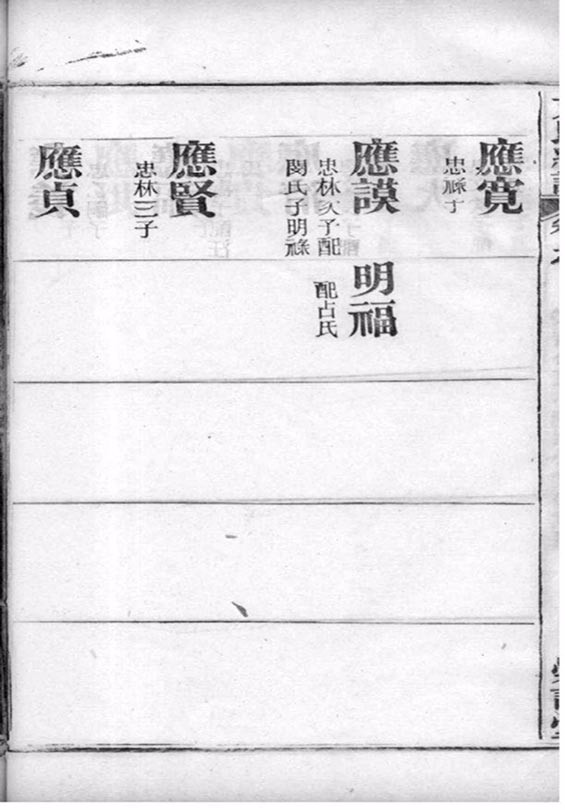 應寬
忠祿子
應謨
忠林次子配
閔氏子明祿
明福
配占氏
應賢
忠林三子
應貞